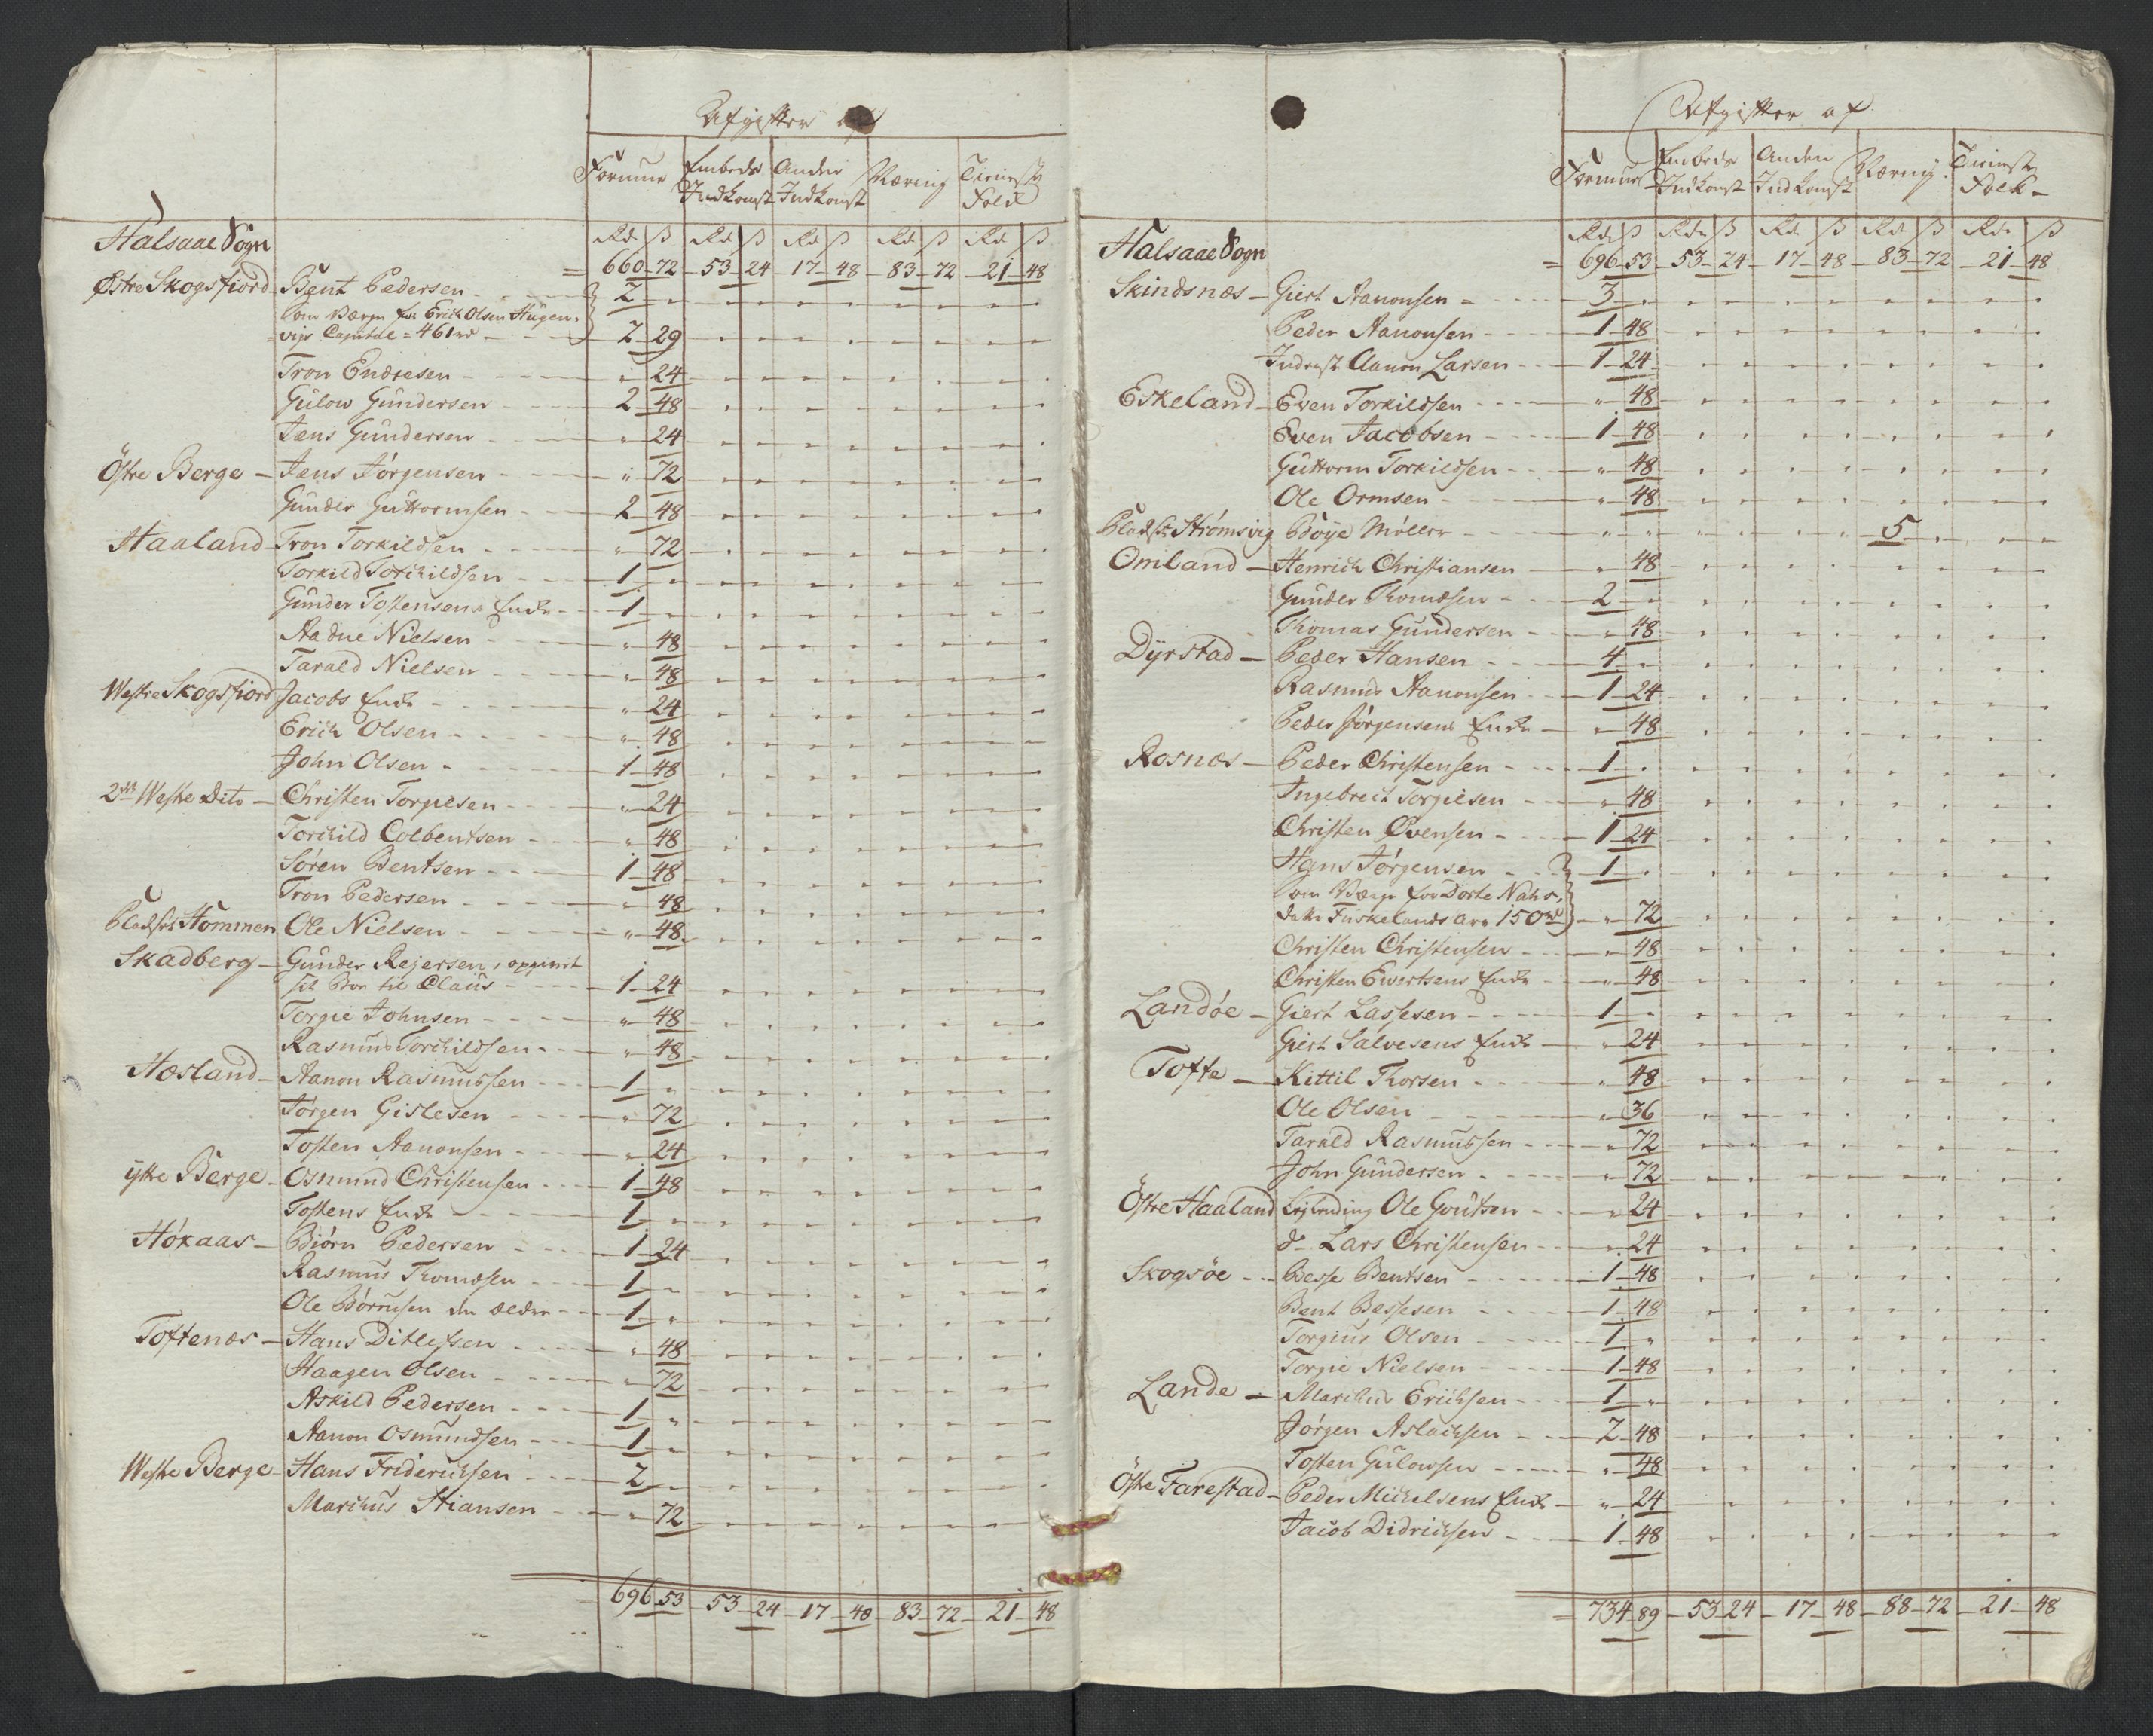 Afgifter af
Formue Embeds Indkomst Anden Indkomst Næring Tieniste Folk
Halsaae Sogn Rd ß Rd ß Rd ß Rd ß Rd ß
660 72 53 24 17 48 83 72 21 48
Østre Skogsfiord Bent Pedersen 2 "
som Værge for Erich Olsen Haagen-
vigs Capital = 461 rd 2 29
Tron Endresen " 24
Gulow Gundersen 2 48
Jens Gundersen " 24
Östre Berge Jens Jørgensen " 72
Gunder Guttormsen 2 48
Haaland Tron Torkildsen " 72
Torkild Torkildsen 1 "
Gunder Tostensens Enke 1 "
Aadne Nielsen " 48
Tarald Nielsen " 48
Westre Skogsfiord Jacobs Enke " 24
Erich Olsen " 48
John Olsen 1 48
2de Westre Dito Christen Torgiesen " 24
Torchild Colbentsen " 48
Søren Bentsen 1 48
Tron Pedersen " 48
Pladset Hommen Ole Nielsen " 48
Skadberg Gunder Rejersen,
til Claus 1 24
Torgie Johnsen " 48
Rasmus Torchildsen " 48
Hæsland Aanon Rasmussen 1 "
Jørgen Gislesen " 72
Tosten Aanonsen " 24
ytre Berge Osmund Christensen 1 48
Tostens Enke 1 "
Høxaas Biørn Pedersen 1 24
Rasmus Thomæsen 1 "
Ole Børresen den ældre 1 "
Toftenæs Hans Ditlefsen " 48
Haagen Olsen " 72
Askild Pedersen 1 "
Aanon Osmundsen 1 "
Westre Berge Hans Friderichsen 2 "
Marchus Stiansen " 72
696 53 53 24 17 48 83 72 21 48
Afgifter af
Formue Embeds Indkomst Anden Indkomst Næring Tieniste Folk
Halsaae Sogn Rd ß Rd ß Rd ß Rd ß Rd ß
696 53 53 24 17 48 83 72 21 48
Skindsnæs Giert Aanonsen 3 "
Peder Aanonsen 1 48
Inderst Aanon Larsen 1 24
Eskeland Even Torkildsen " 48
Even Jacobsen 1 48
Guttorm Torkildsen " 48
Ole Ormsen " 48
Pladset Strømsvig Böye Møller " " 5
Omland Henrich Christiansen " 48
Gunder Thomæsen 2 "
Thomas Gundersen " 48
Dyrstad Peder Hansen 4 "
Rasmus Aanonsen 1 24
Peder Jørgensens Enke " 48
Rosnæs Peder Christensen 1 "
Ingebrect Torgiesen " 48
Christen Evensen 1 24
Hans Jørgensen 1 "
som Værge for Dorte
Fuskelands Arv 150 rd " 72
Christen Christensen " 48
Christen Ewertsens Enke " 48
Landøe Giert Lassesen 1 "
Giert Salvesens Enke " 24
Tofte Kittil Thorsen " 48
Ole Olsen " 36
Tarald Rasmussen " 72
John Gundersen " 72
Östre Haaland Ole Goutsen " 24
do Lars Christensen " 24
Skogsøe Besse Bentsen 1 48
Bent Bessesen 1 48
Torgius Olsen 1 "
Torgie Nielsen 1 48
Lande Marchus Erichsen 1 "
Jørgen Aslachsen 2 48
Tosten Gulowsen " 48
Östre Farestad Peder Michelsens Enke " 24
Jacob Didrichsen 1 48
734 89 53 24 17 48 88 72 21 48